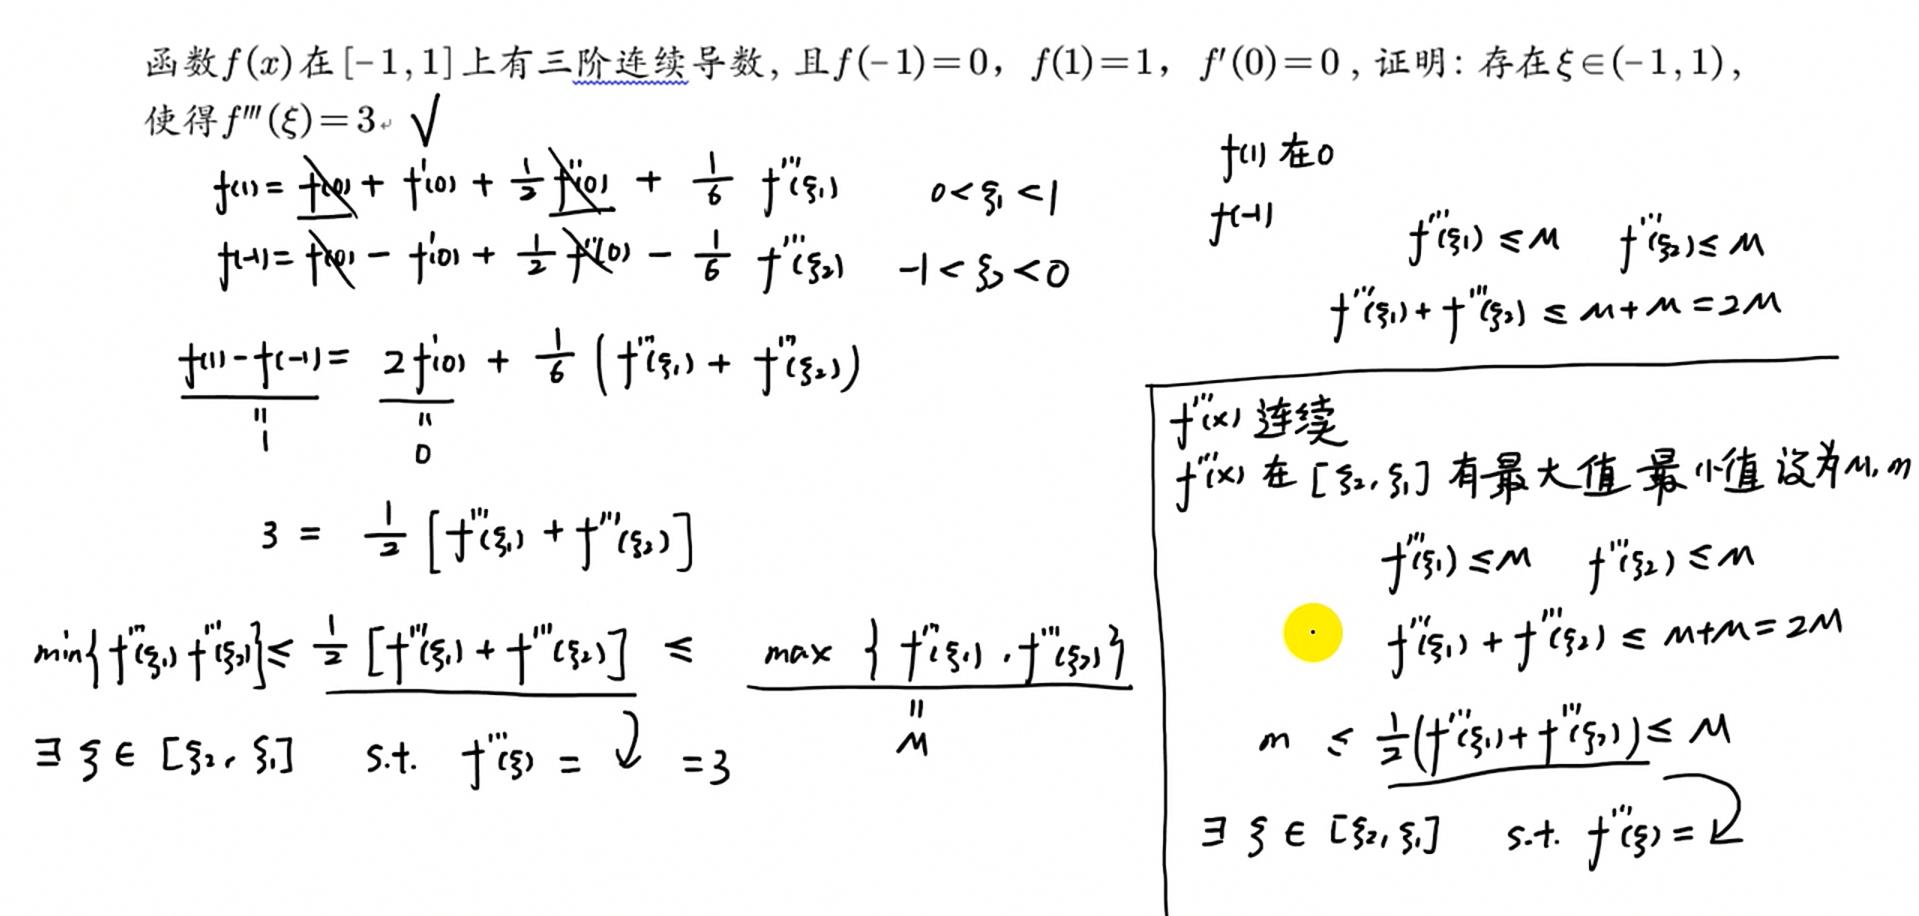 函数f(x)在[-1,1]上有三阶连续导数, 且f(-1)=0, f(1)=1, f′(0)=0, 证明: 存在ξ∈(-1,1),
使得f‴(ξ)=3 √
f(1) = f(0) + f′(0) + 1/2 f″(0) + 1/6 f‴(ξ₁) 0<ξ₁<1
f(-1) = f(0) - f′(0) + 1/2 f″(0) - 1/6 f‴(ξ₂) -1<ξ₂<0
f(1)-f(-1) = 2f′(0) + 1/6 (f‴(ξ₁) + f‴(ξ₂))
" "
1 0
3 = 1/2 [f‴(ξ₁) + f‴(ξ₂)]
min{f‴(ξ₁) f‴(ξ₂)} ≤ 1/2 [f‴(ξ₁) + f‴(ξ₂)] ≤ max {f‴(ξ₁), f‴(ξ₂)}
"
M
∃ ξ ∈ [ξ₂, ξ₁] s.t. f‴(ξ) = =3
f(1) 在0
f(-1)
f‴(ξ₁) ≤ M f‴(ξ₂) ≤ M
f‴(ξ₁) + f‴(ξ₂) ≤ M+M = 2M
f‴(x) 连续
f‴(x) 在 [ξ₂, ξ₁] 有最大值 最小值 设为M, m
f‴(ξ₁) ≤ M f‴(ξ₂) ≤ M
f‴(ξ₁) + f‴(ξ₂) ≤ M+M = 2M
m ≤ 1/2 (f‴(ξ₁) + f‴(ξ₂)) ≤ M
∃ ξ ∈ [ξ₂, ξ₁] s.t. f‴(ξ) =